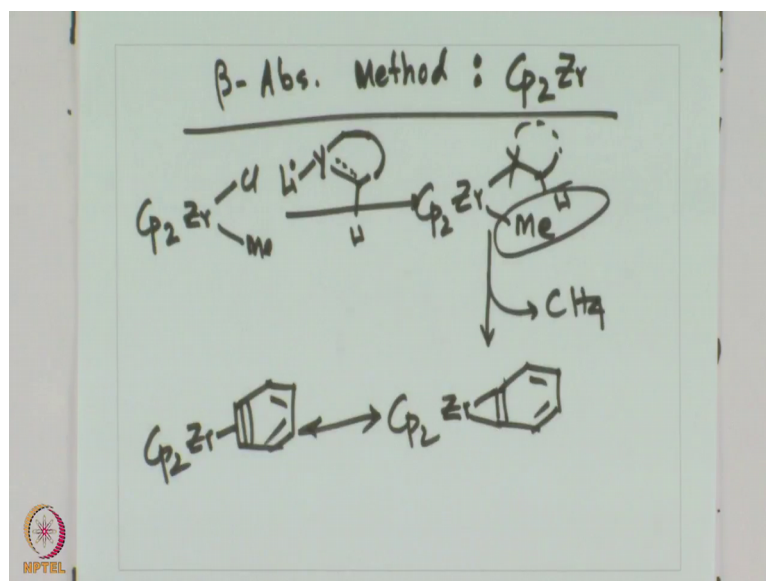 β-Abs. Method : Cp2Zr
Cp2Zr Cl Me Li-Y H Cp2Zr Y H Me
CH4
Cp2Zr Cp2 Zr
NPTEL